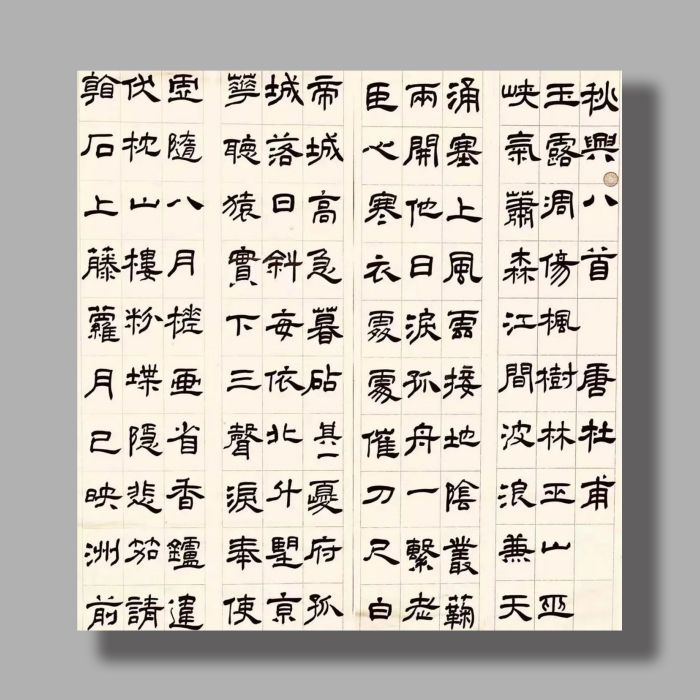 秋興八首 唐杜甫
玉露凋傷楓樹林巫山巫
峽氣蕭森江間波浪兼天
涌塞上風雲接地陰叢鞠
兩開他日淚孤舟一繫老
臣心寒衣處處催刀尺白
帝城高急暮砧其一夔府孤
城落日斜每依北斗望京
華聽猿實下三聲淚奉使
虛隨八月槎畫省香鑪違
伏枕山樓粉堞隱悲笳請
看石上藤蘿月已映洲前